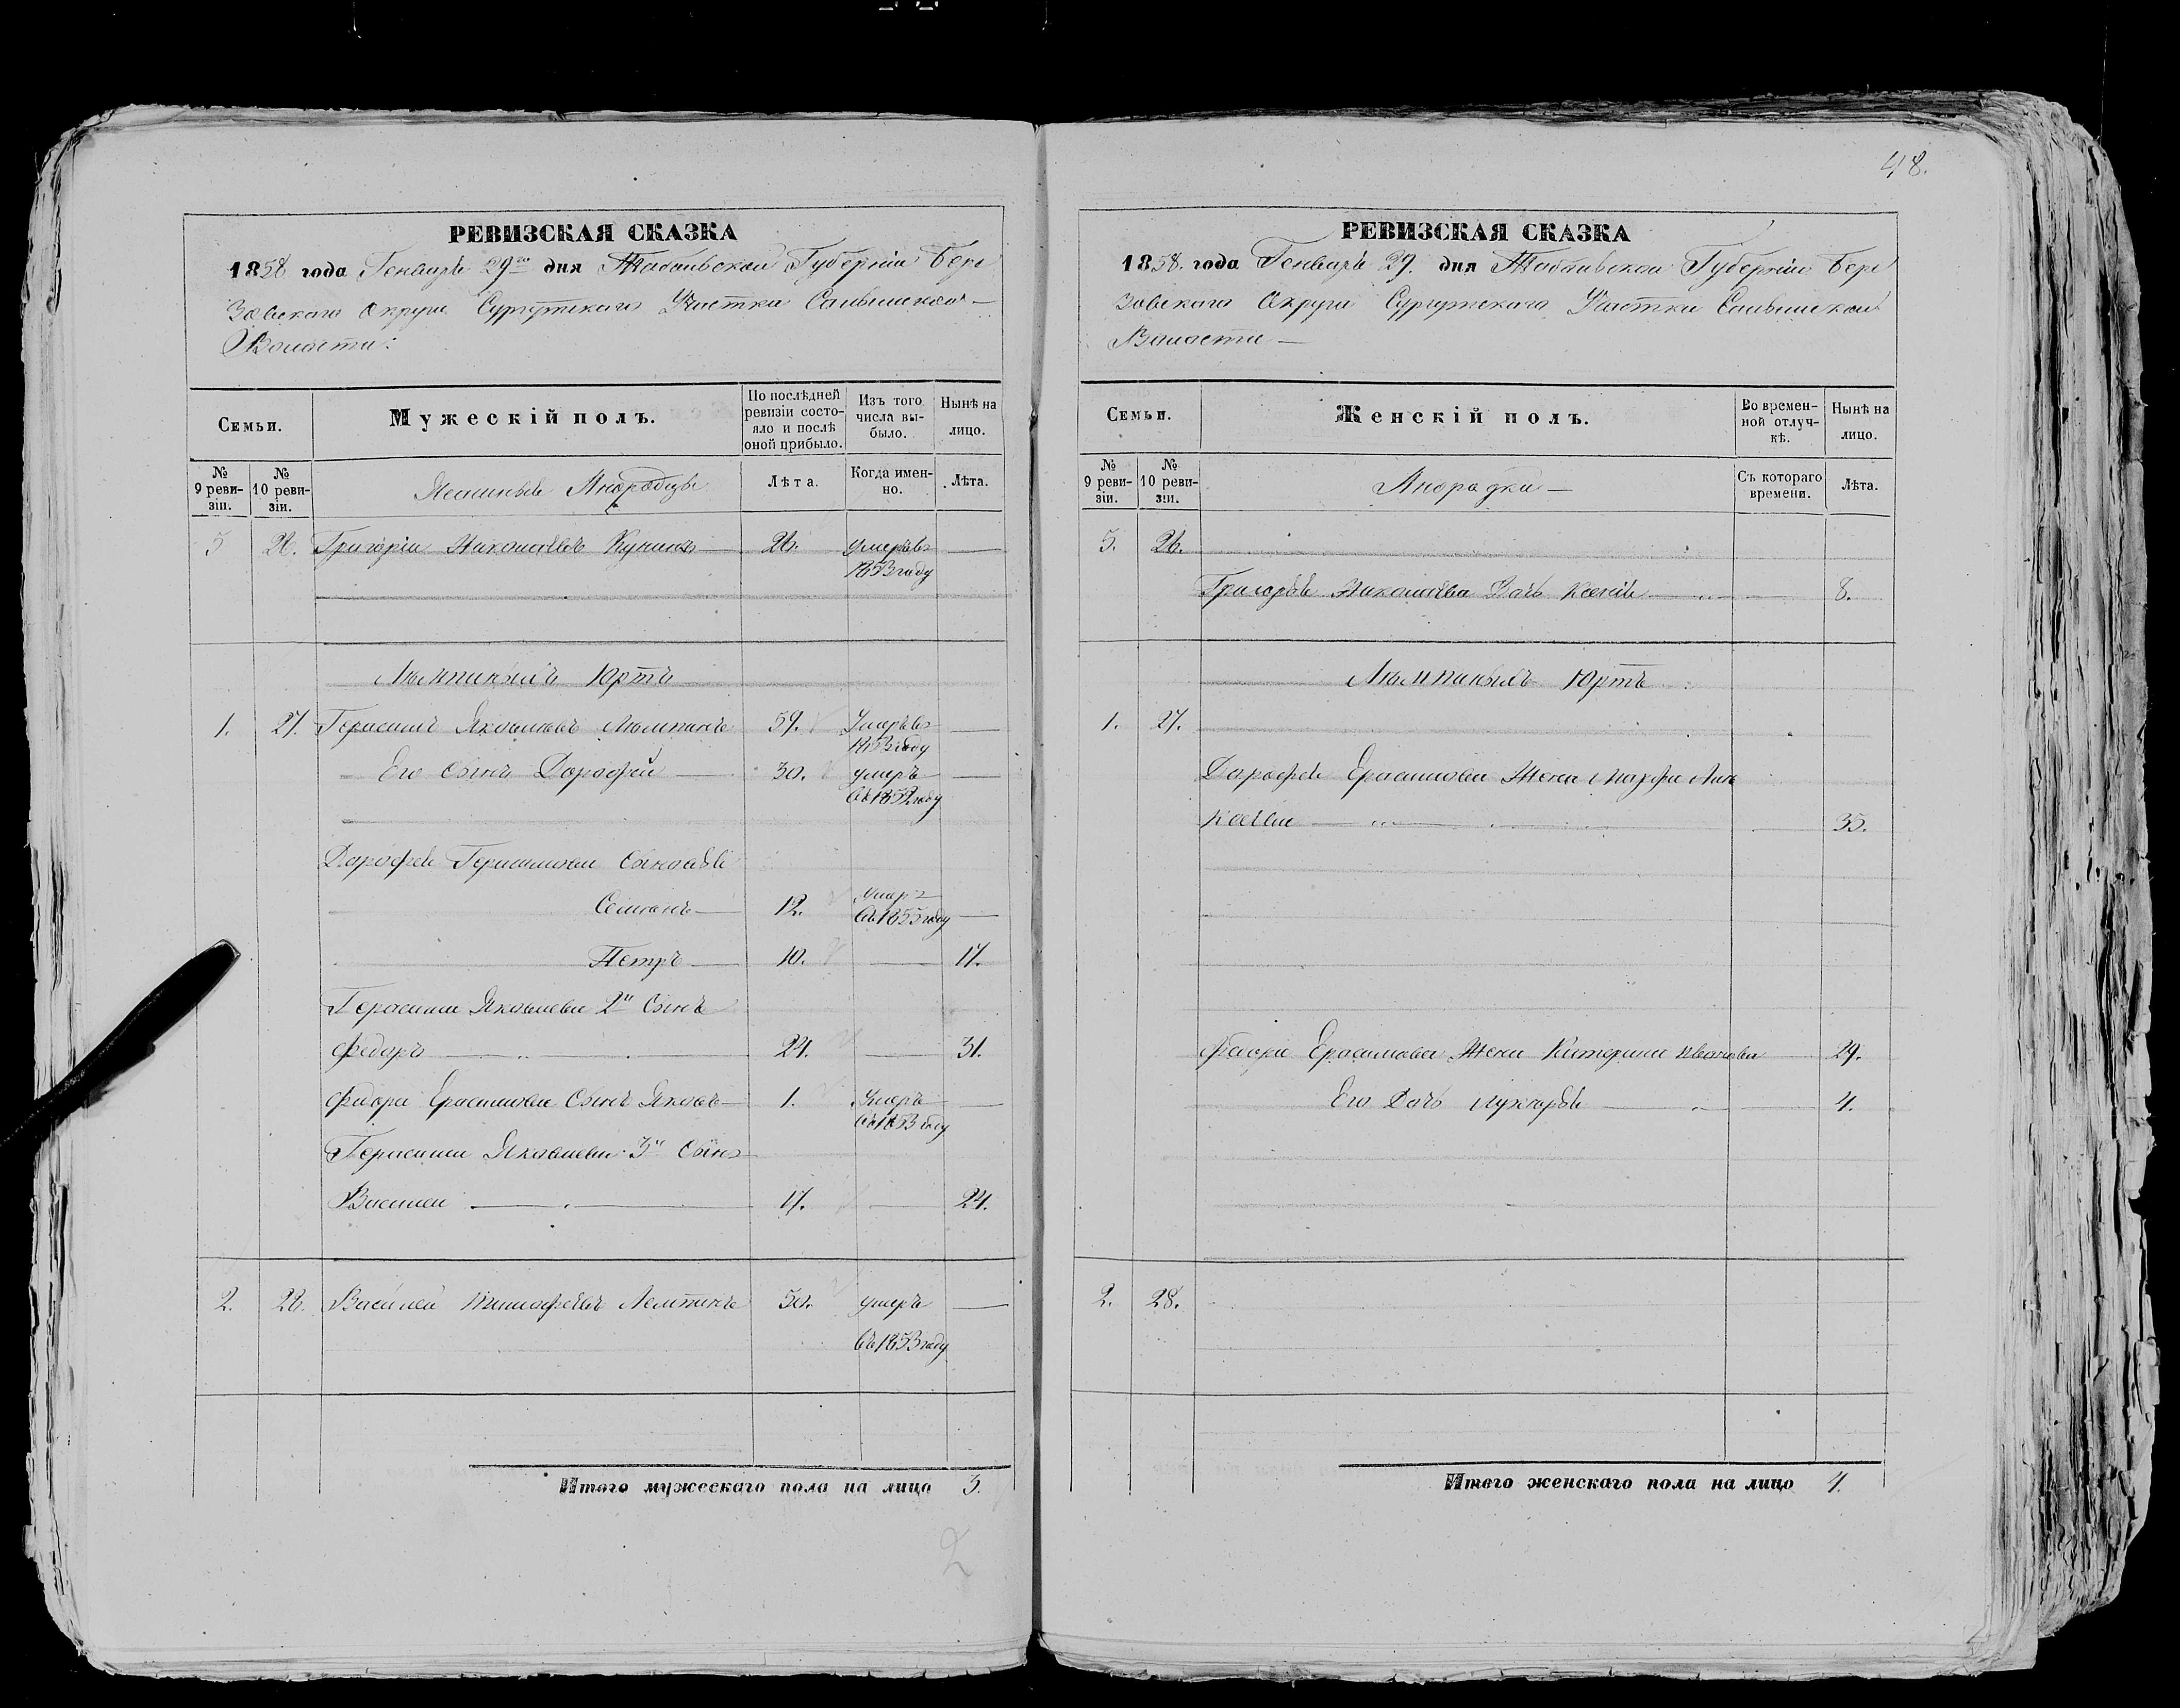 48.
РЕВИЗСКАЯ СКАЗКА
1858 года Генваря 29го дня Тобольской Губерніи Бере
зовскаго Округа Сургутскаго Участка Салымской
Волости:
Семьи.
Мужескій полъ.
По послѣдней ревизіи состояло и послѣ оной прибыло.
Изъ того числа выбыло.
Нынѣ на лицо.
№ 9 ревизіи.
№ 10 ревизіи.
Ясашные Инородцы
Лѣта.
Когда именно.
Лѣта.
5 26. Григорій Николаевъ Кунинъ 26. умеръ въ
1853 году
Юртъ
1. 27. Герасимъ Яковлевъ 59. Умеръ въ
1853 году
Его Сынъ Дорофей 30. умеръ
въ 1852 году
Дорофея Герасимова Сыновья
Семенъ 12. умеръ
въ 1855 году
Петръ 10. 17.
Герасима Яковлева 2й Сынъ
Федоръ 24. 31.
Федора Ерасимова Сынъ Яковъ 1. Умеръ
въ 1853 году
Герасима Яковлева 3й Сынъ
Василей 17. 24.
2. 28. Василей Тимофеевъ 50. умеръ
въ 1853 году
Итого мужескаго пола на лицо 3.
2
РЕВИЗСКАЯ СКАЗКА
1858. года Генваря 29. дня Тобольской Губерніи Бере
зовскаго Округа Сургутскаго Участка Салымской
Волости
Семьи.
Женскій полъ.
Во временной отлучкѣ.
Нынѣ на лицо.
№ 9 ревизіи.
№ 10 ревизіи.
Инородки
Съ котораго времени.
Лѣта.
5. 26.
Григорья Николаева Дочь Ксенія 8.
Юртъ
1. 27.
Дорофея Ерасимова Жена Марфа Але
ксѣева 35.
Федора Ерасимова Жена Катерина Иванова 29.
Его Дочь 4.
2. 28.
Итого женскаго пола на лицо 4.